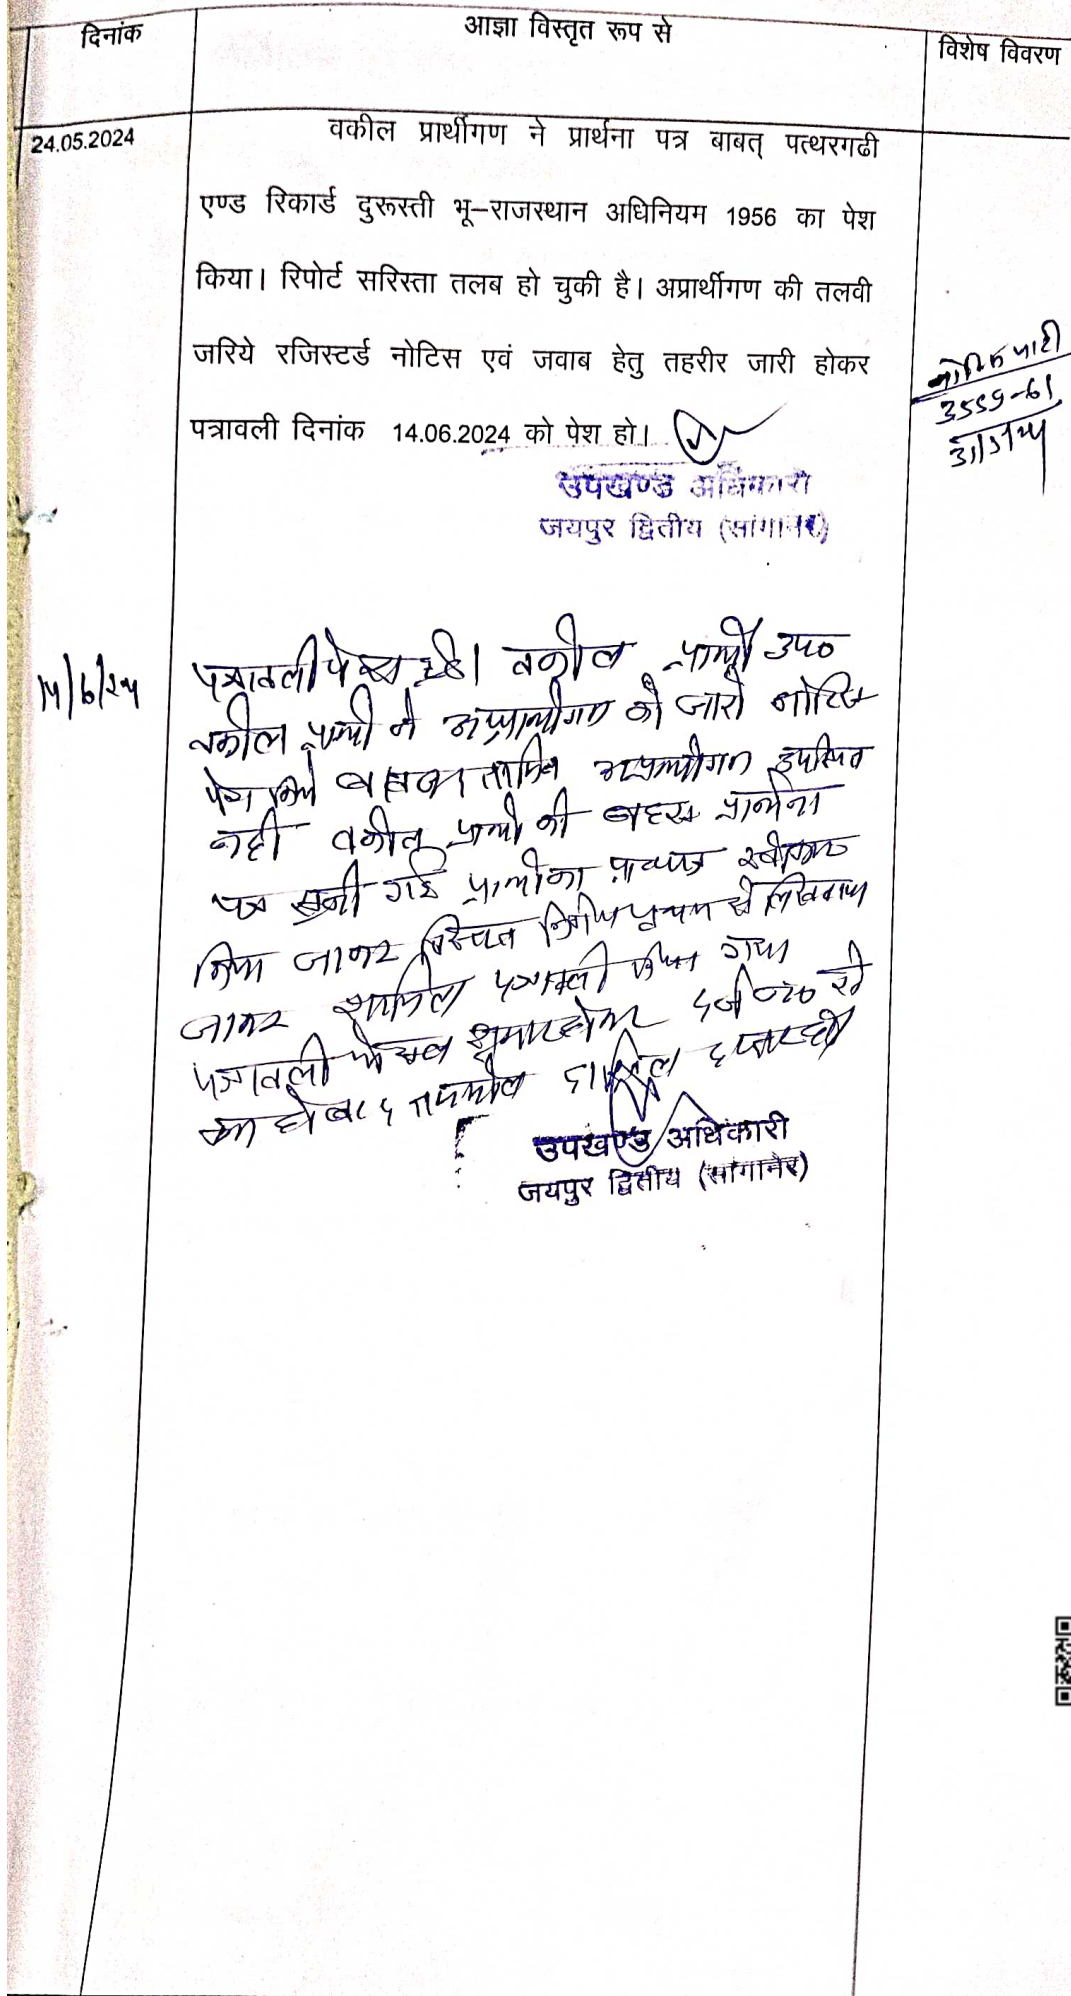 दिनांक
आज्ञा विस्तृत रूप से
विशेष विवरण
24.05.2024
वकील प्रार्थीगण ने प्रार्थना पत्र बाबत् पत्थरगढी
एण्ड रिकार्ड दुरूस्ती भू–राजस्थान अधिनियम 1956 का पेश
किया। रिपोर्ट सरिस्ता तलब हो चुकी है। अप्रार्थीगण की तलवी
जरिये रजिस्टर्ड नोटिस एवं जवाब हेतु तहरीर जारी होकर
पत्रावली दिनांक 14.06.2024 को पेश हो।
उपखण्ड अधिकारी
जयपुर द्वितीय (सांगानेर)
3559-61
14/6/24
पत्रावली पेश हुई। वकील प्रार्थी उप०
वकील प्रार्थी ने अप्रार्थीगण को जारी नोटिस
पेश किये अप्रार्थीगण उपस्थित
नही वकील प्रार्थी की बहस प्रार्थना
पत्र सुनी गई प्रार्थी का स्वीकार
किया जाकर विस्तृत निर्णय पृथक से लिखवाया
जाकर शामिल पत्रावली किया गया
पत्रावली फैसल शुमार होकर दर्ज से
कम हो बाद तकमील दाखिल दफ्तर हो
उपखण्ड अधिकारी
जयपुर द्वितीय (सांगानेर)